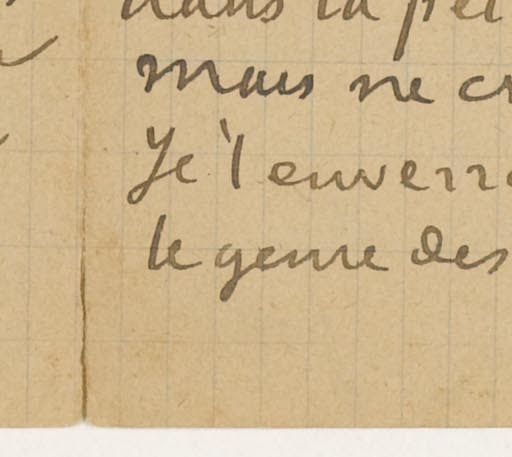 dans la pet
mais ne cr
Je l'enverra
le genre des